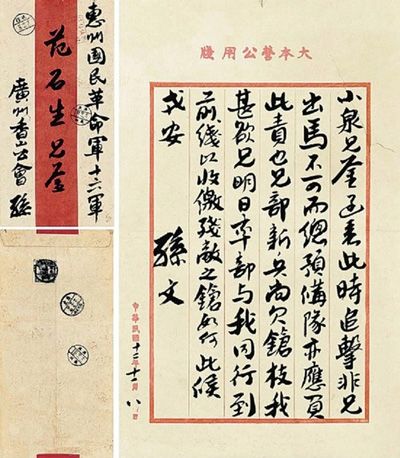 惠州國民革命軍十六軍
范石生兄鉴
廣州香山公會 孫
大本營公用牋
小泉兄鉴函悉此時追擊非兄
出馬不可而總預備隊亦應負
此責也兄部新兵尚欠鎗枝我
甚欲兄明日率部與我同行到
前綫以收繳殘敵之鎗如何此候
戎安
孫文
中華民國十二年十一月八日